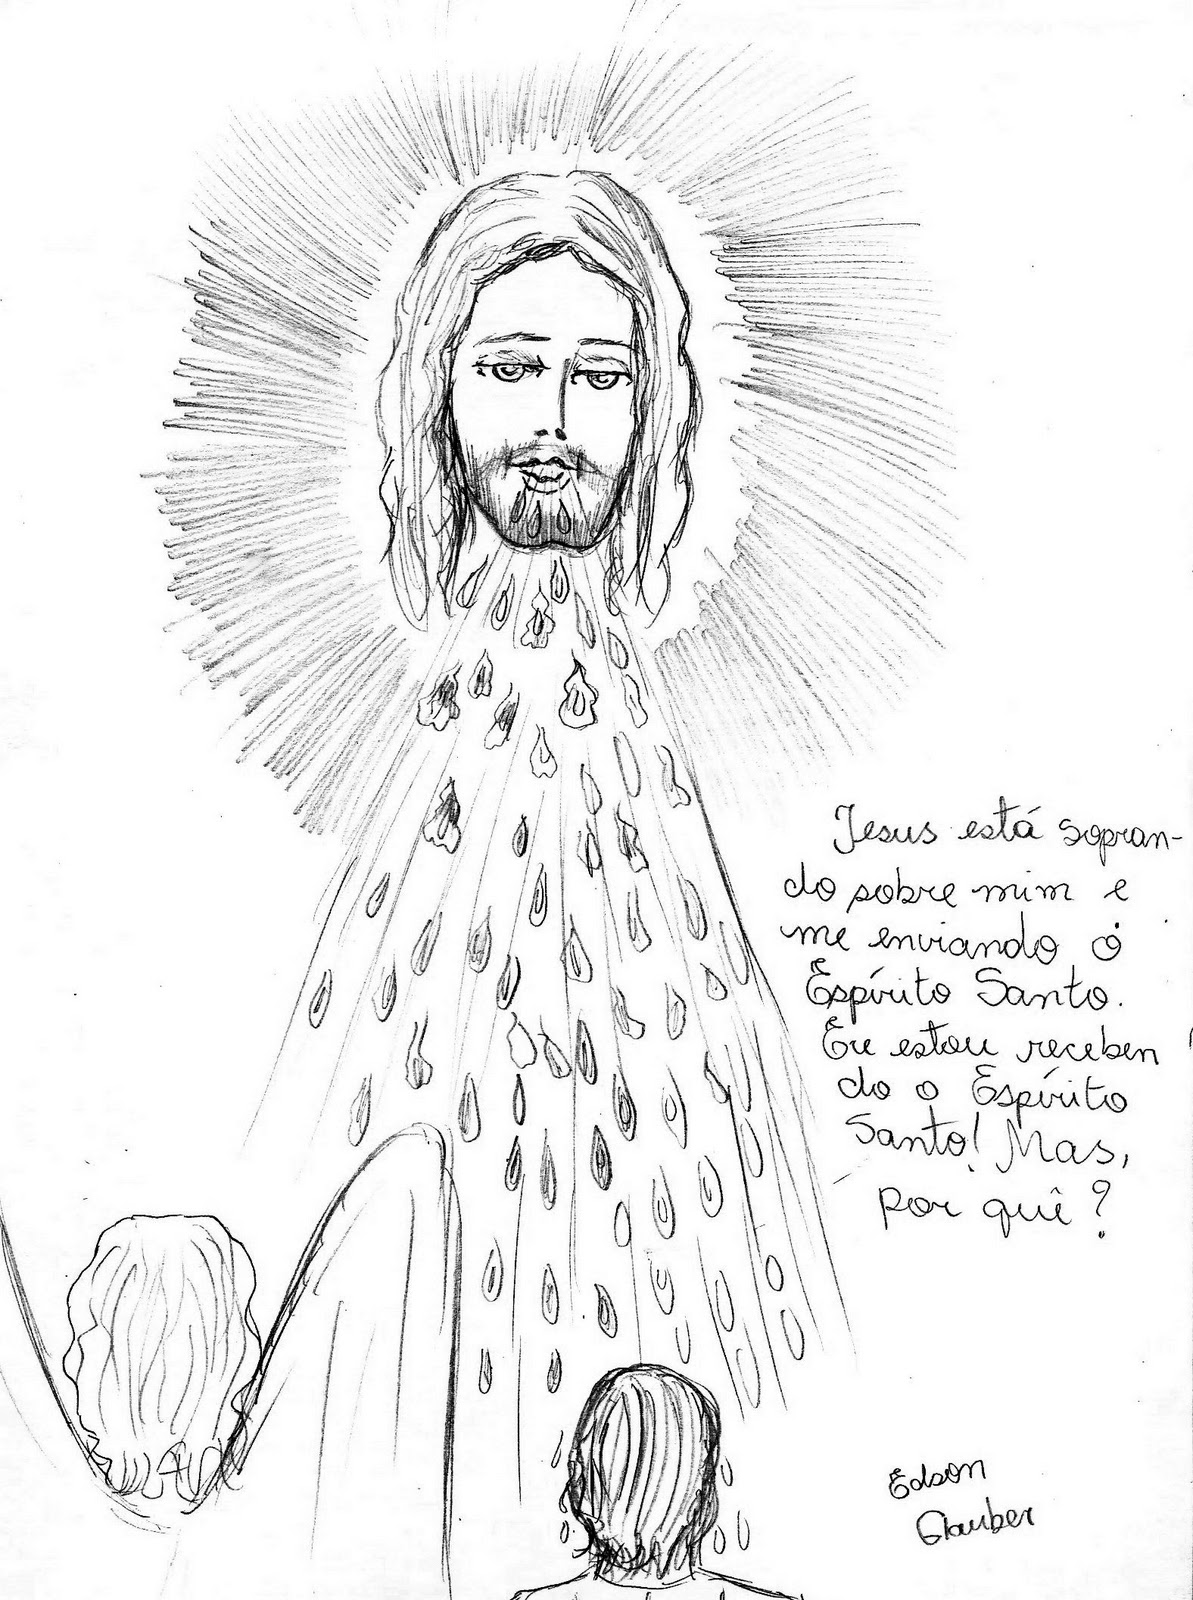 Jesus está sopran-
do sobre mim e
me enviando o
Espírito Santo.
Eu estou receben
do o Espírito
Santo! Mas,
por quê?
Edson
Glauber